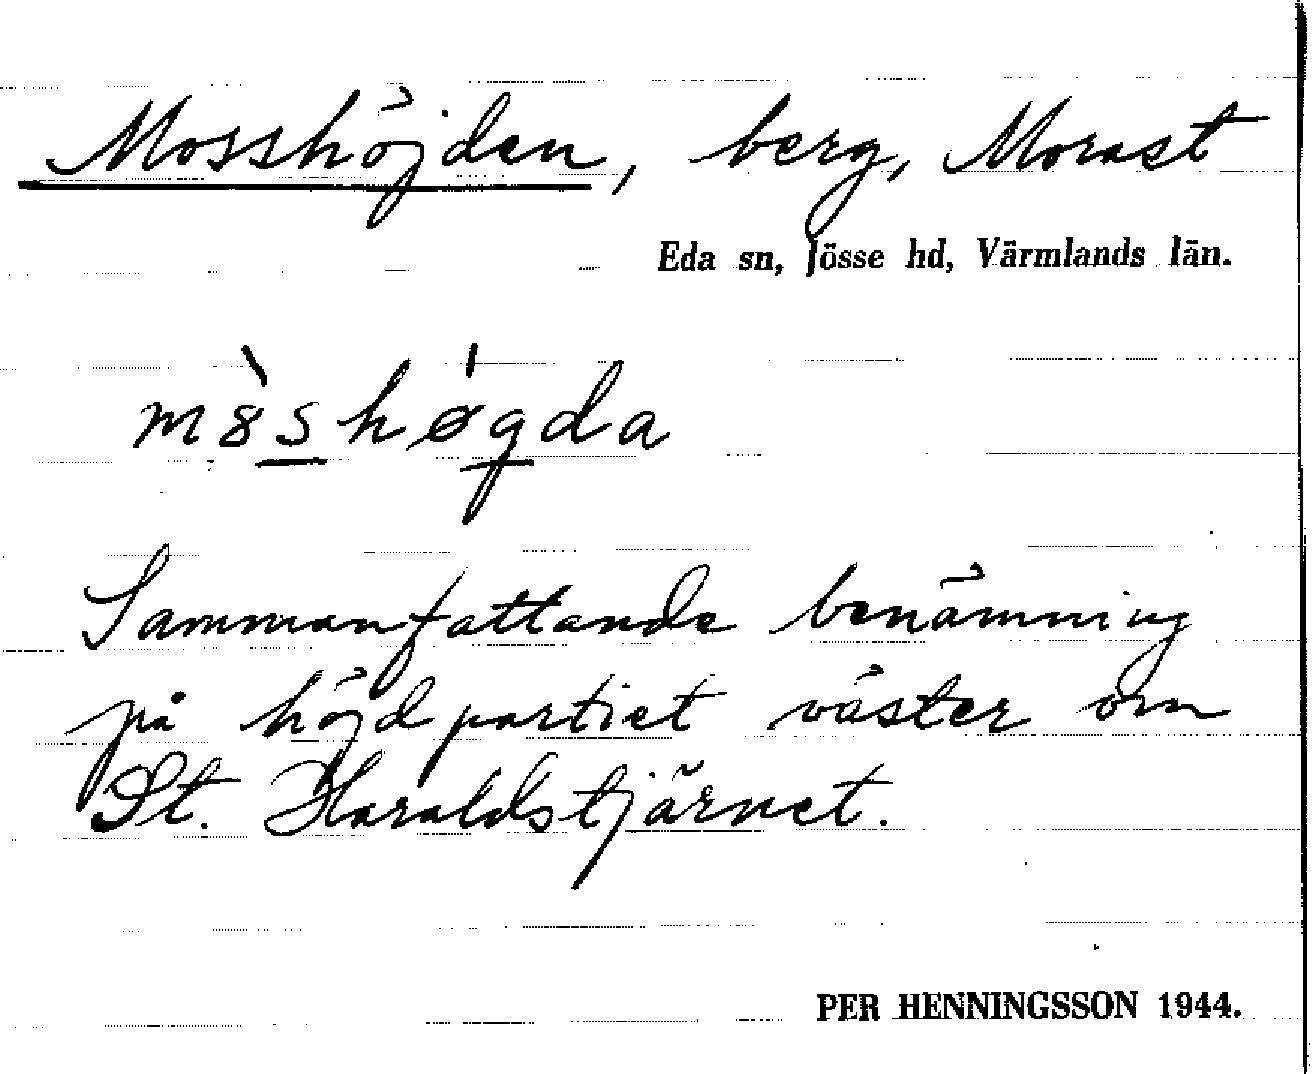 Mosshöjden, berg, Morast
Eda sn, Jösse hd, Värmlands län.
m8̀shǿgda
Sammanfattande benämning
på höjdpartiet väster om
St. Haraldstjärnet.
PER HENNINGSSON 1944.